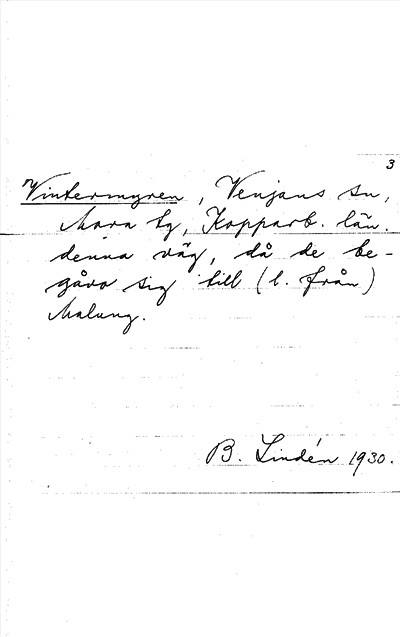 3
Vintermyren, Venjans sn,
Mora tg, Kopparb. län.
denna väg, då de be-
gåvo sig till (l. från)
Malung.
B. Lindén 1930.